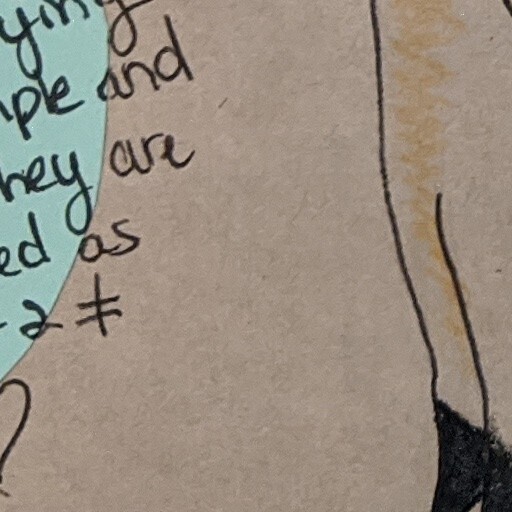 ying
ple and
hey are
ed as
-2 ≠